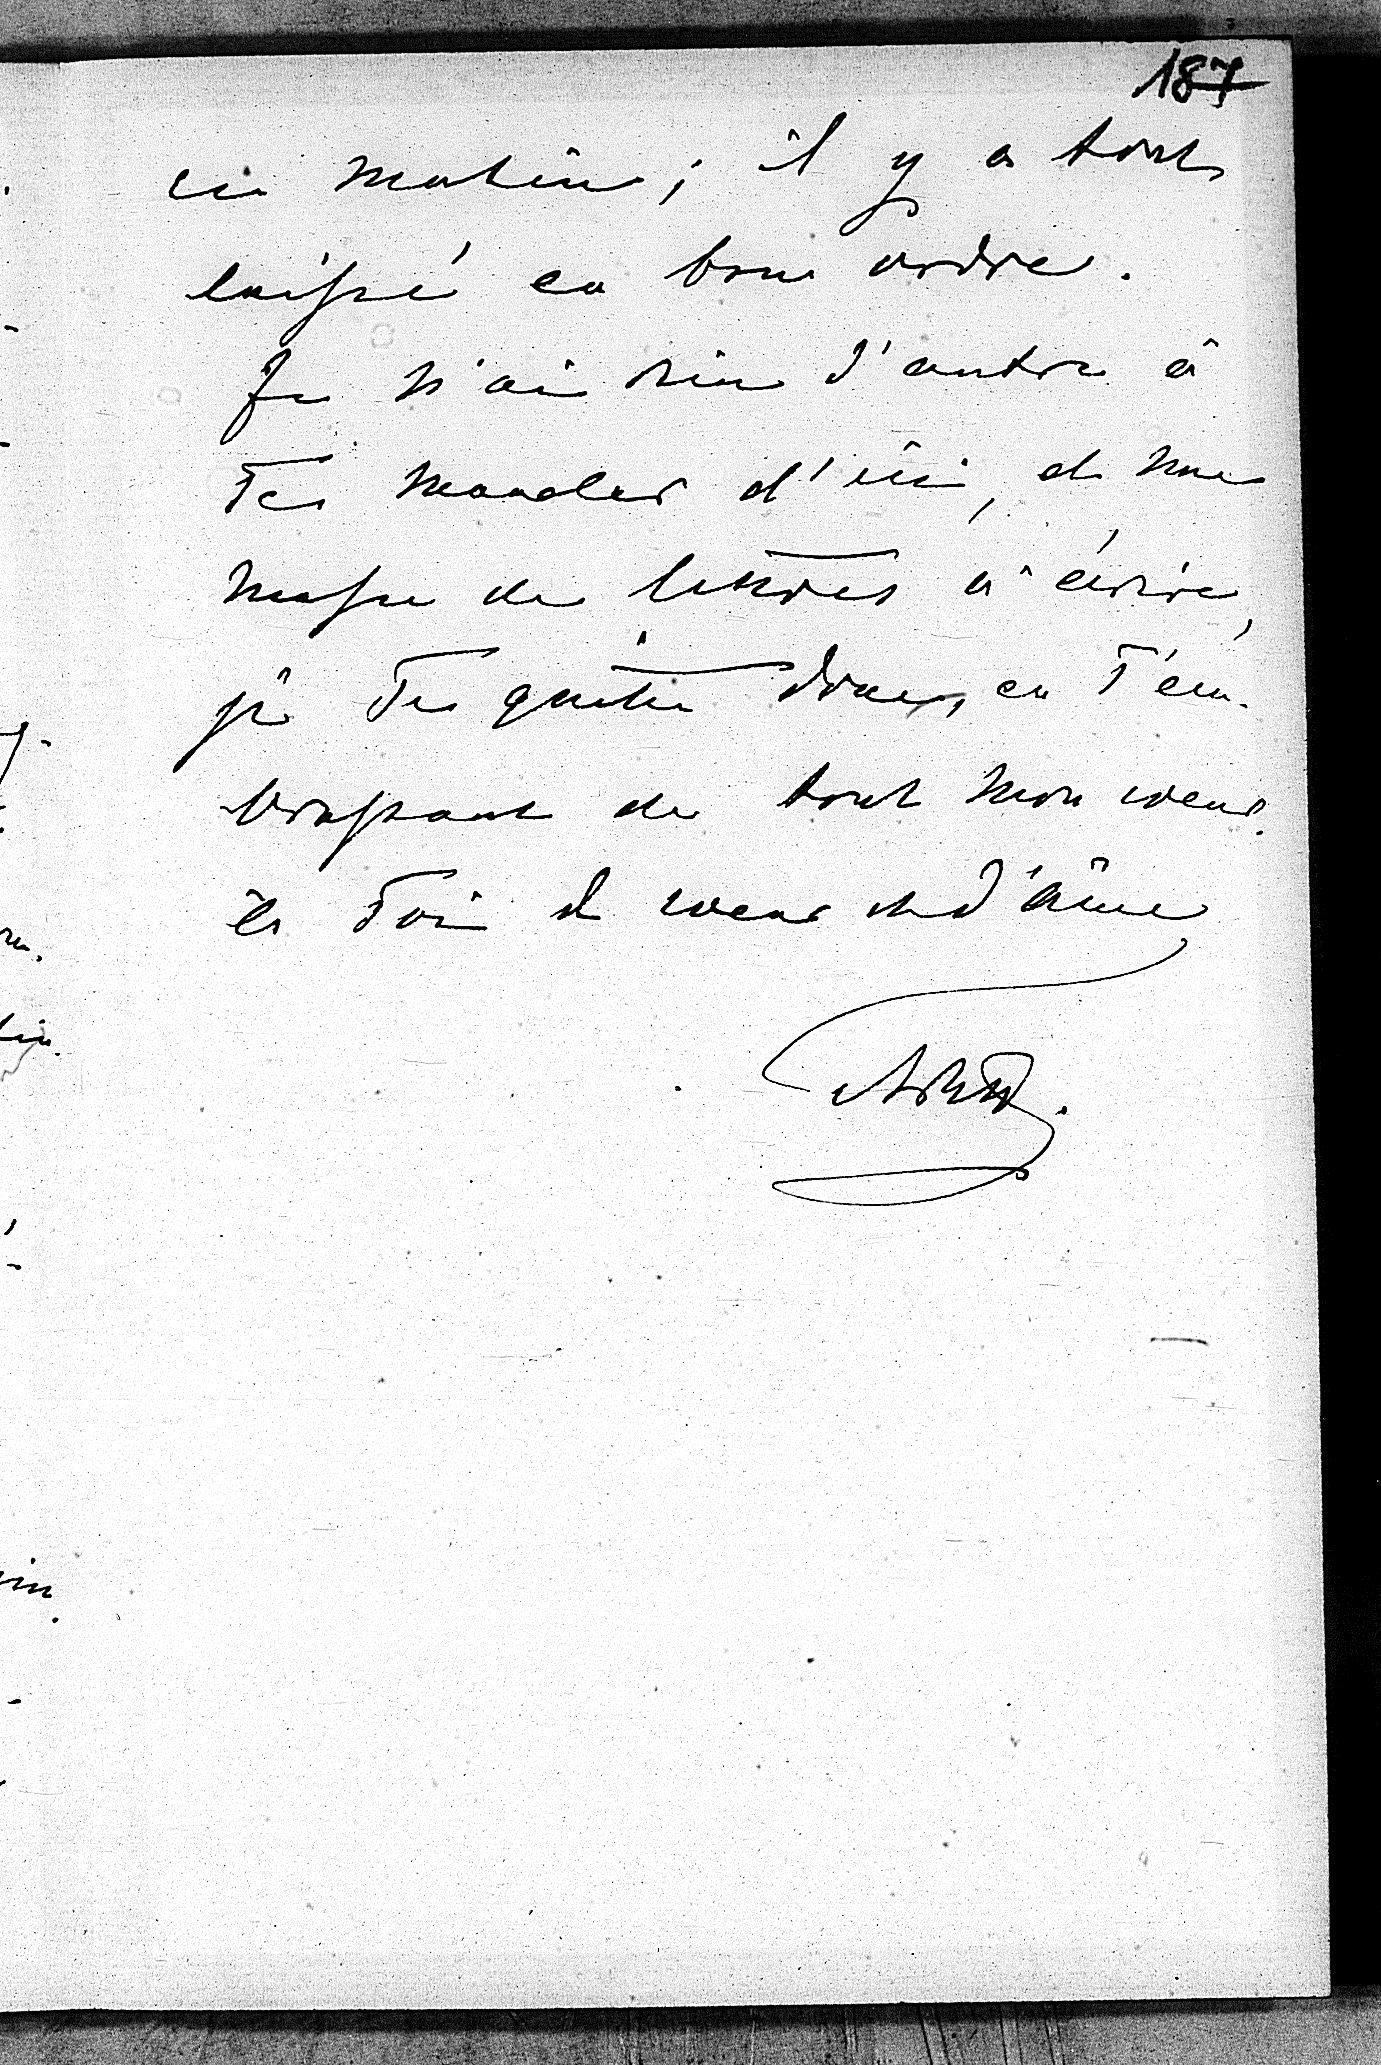 187
ce matin; il y a tout
laissé en bon ordre.
Je n'ai rien d'autre à
Te mander d'ici, et une
masse de lettres à écrire,
je Te quitte donc, en T'em-
brassant de tout mon coeur.
à Toi de coeur et d'âme